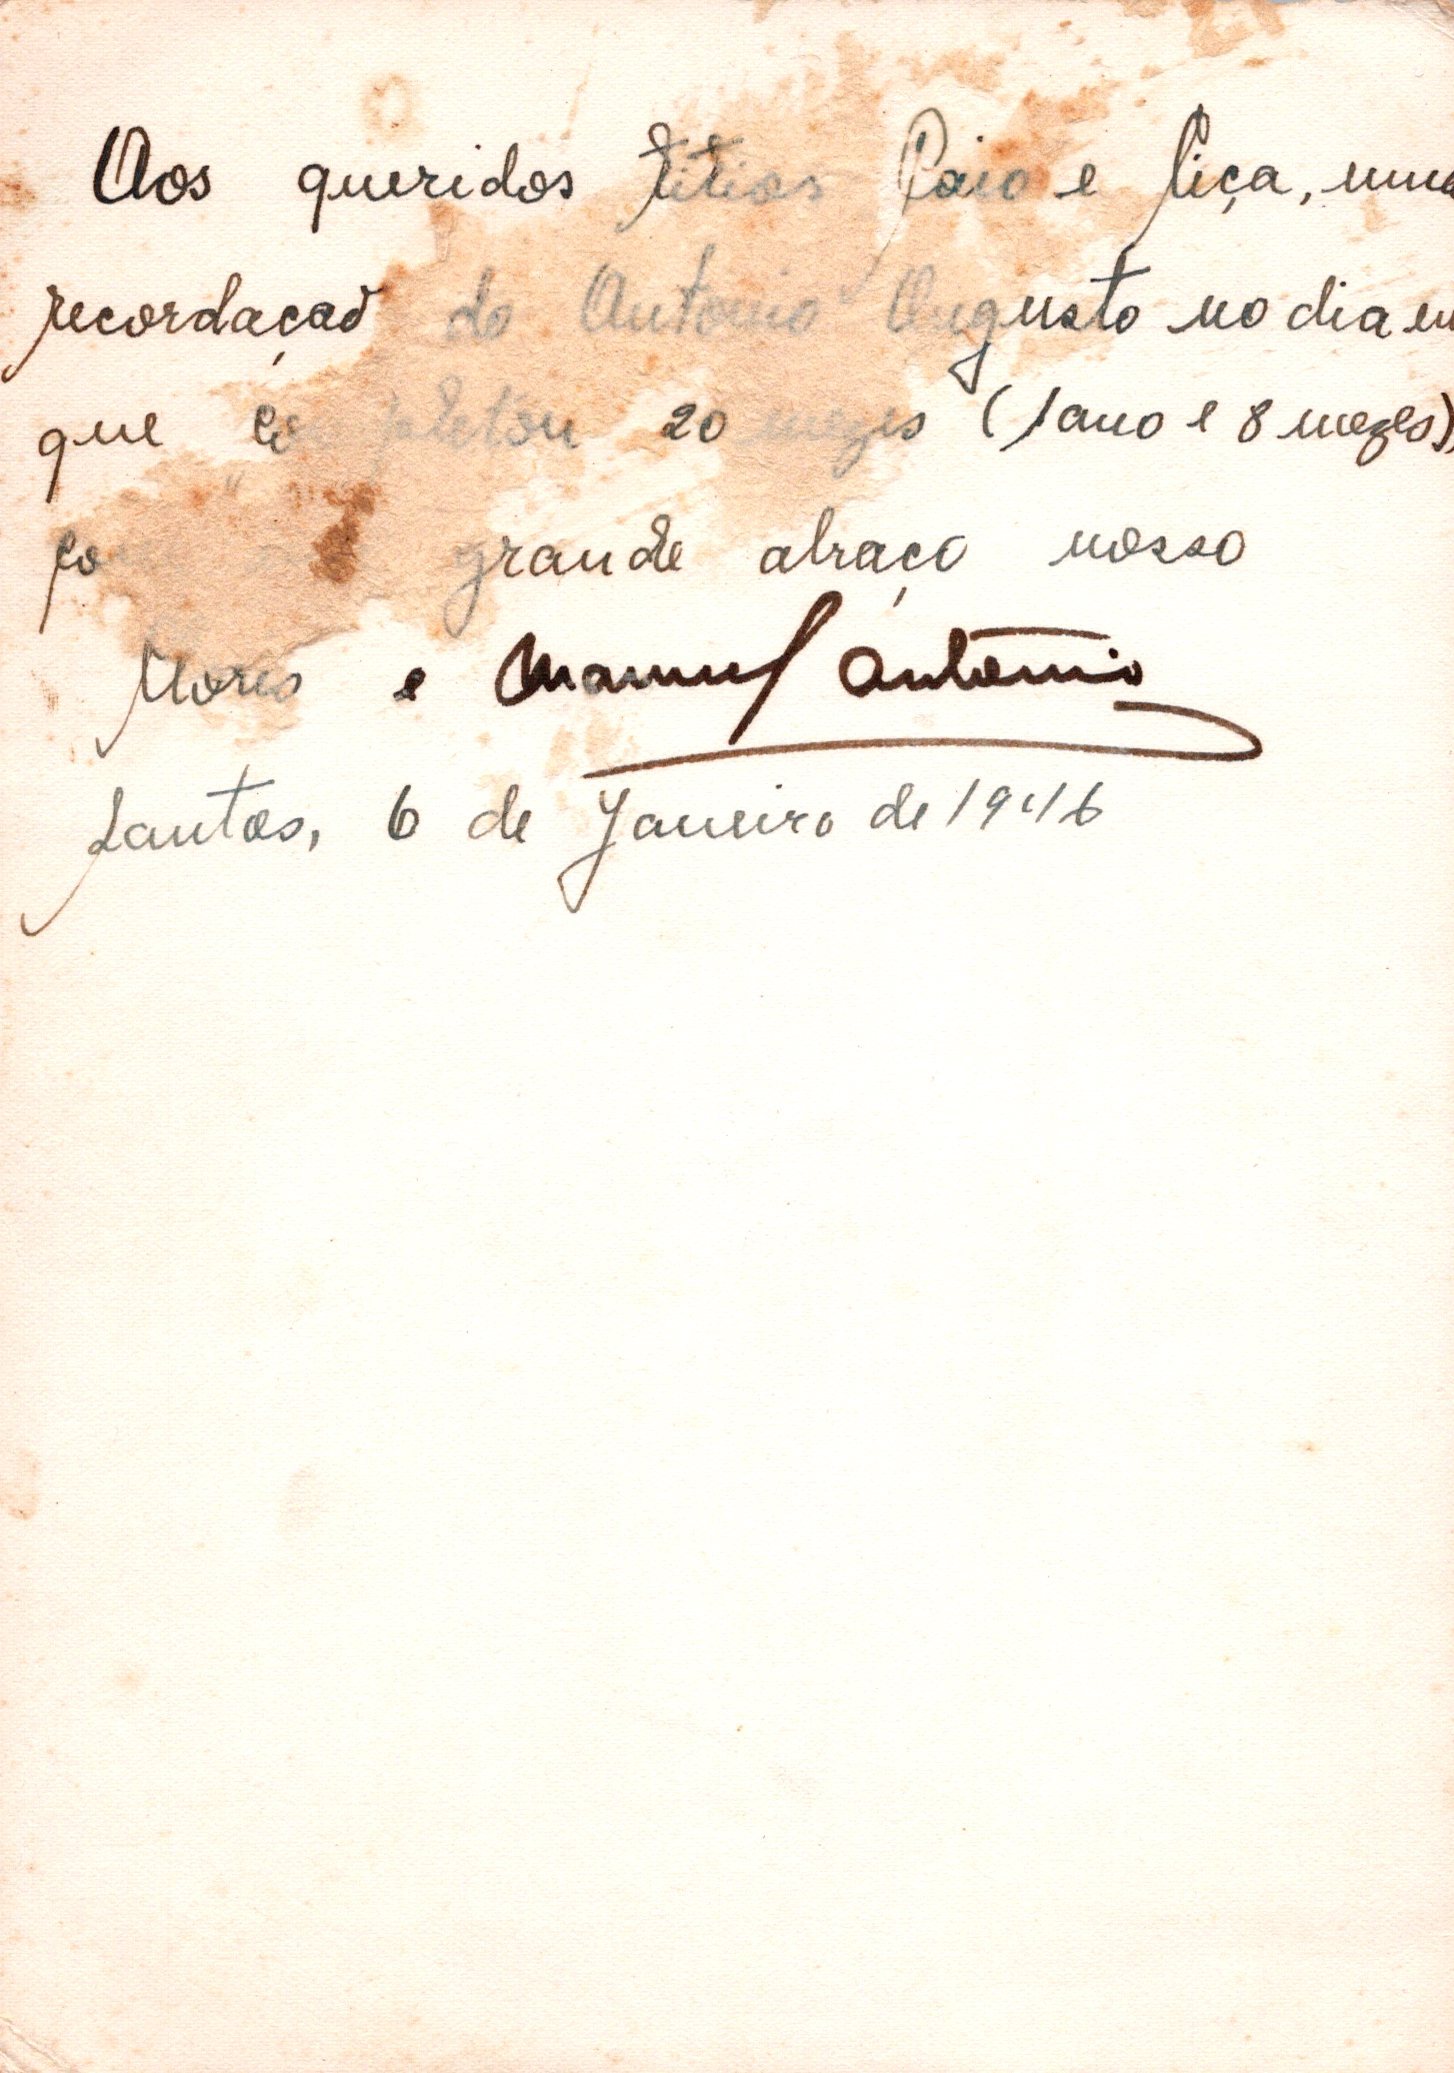 Aos queridos titios Caio e Ciça, uma
recordação do Antonio Augusto no dia em
que completou 20 mezes (1 ano e 8 mezes),
com grande abraço nosso
e Manuel Antonio
Santos, 6 de Janeiro de 1946